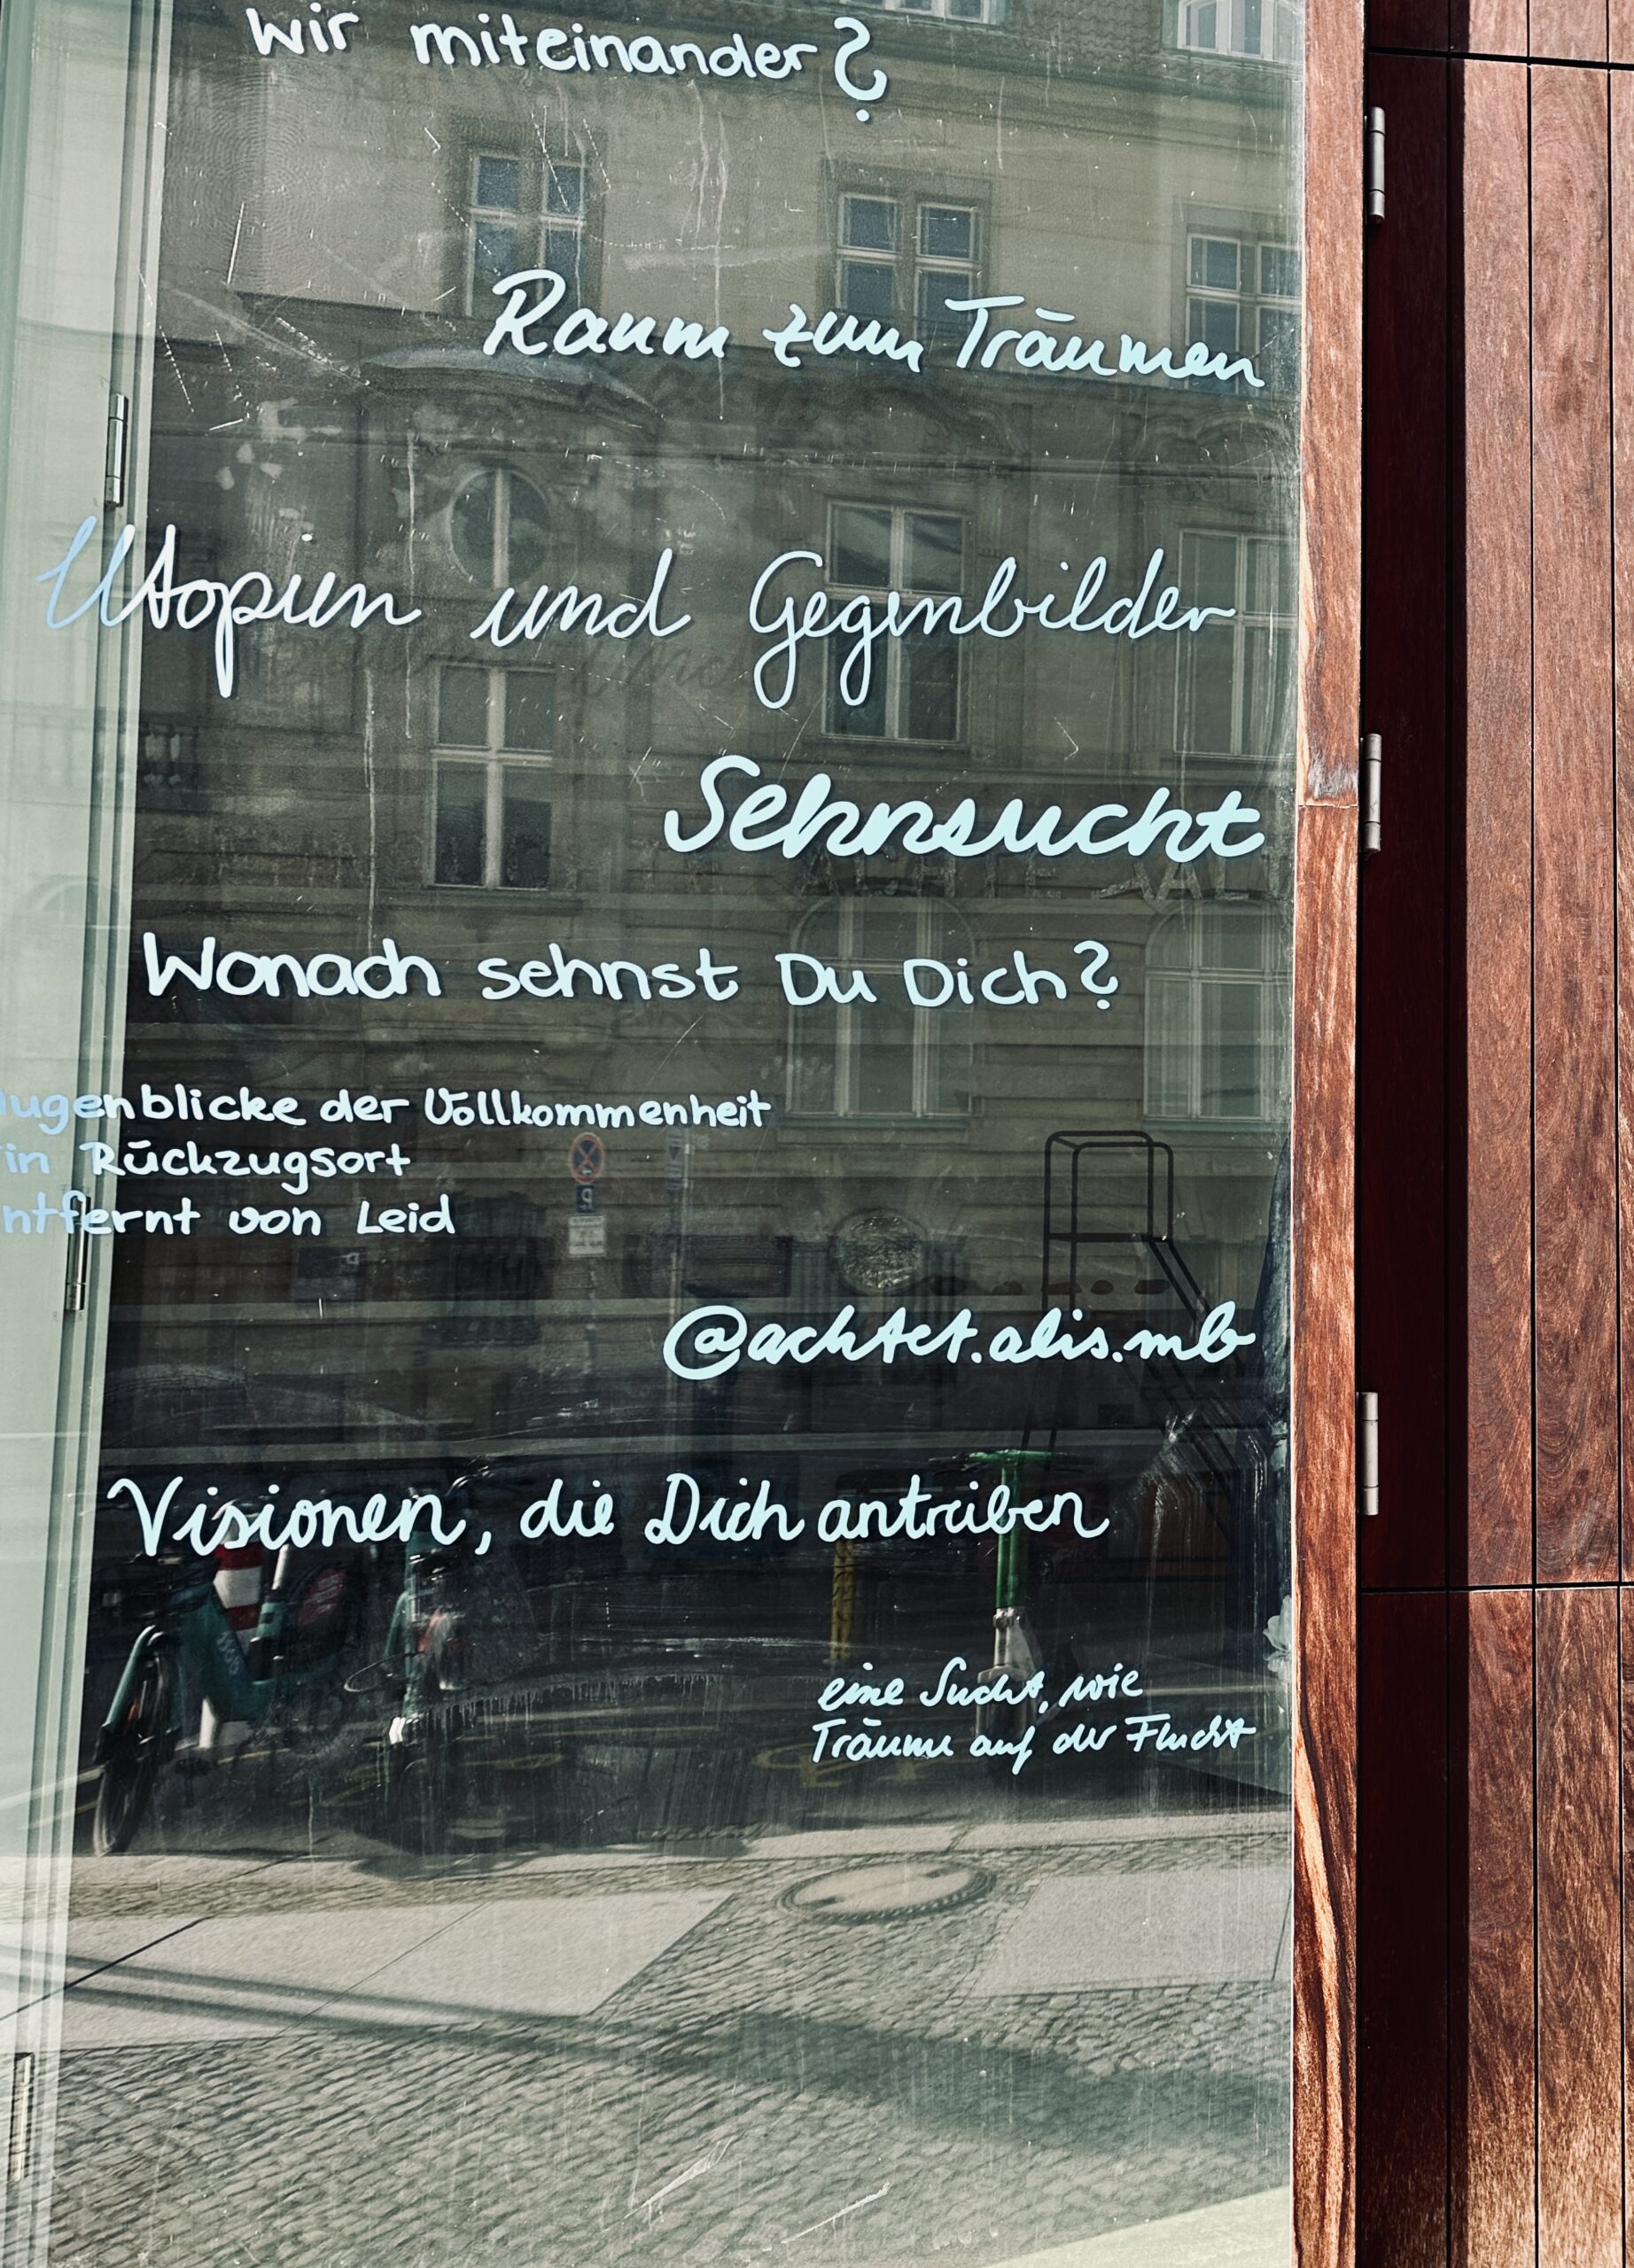 wir miteinander?
Raum zum Träumen
Utopien und Gegenbilder
Sehnsucht
Wonach sehnst Du Dich?
ugenblicke der Vollkommenheit
in Rückzugsort
ntfernt von Leid
@achtet.alis.mb
Visionen, die Dich antreiben
eine Sucht, wie
Träume auf der Flucht